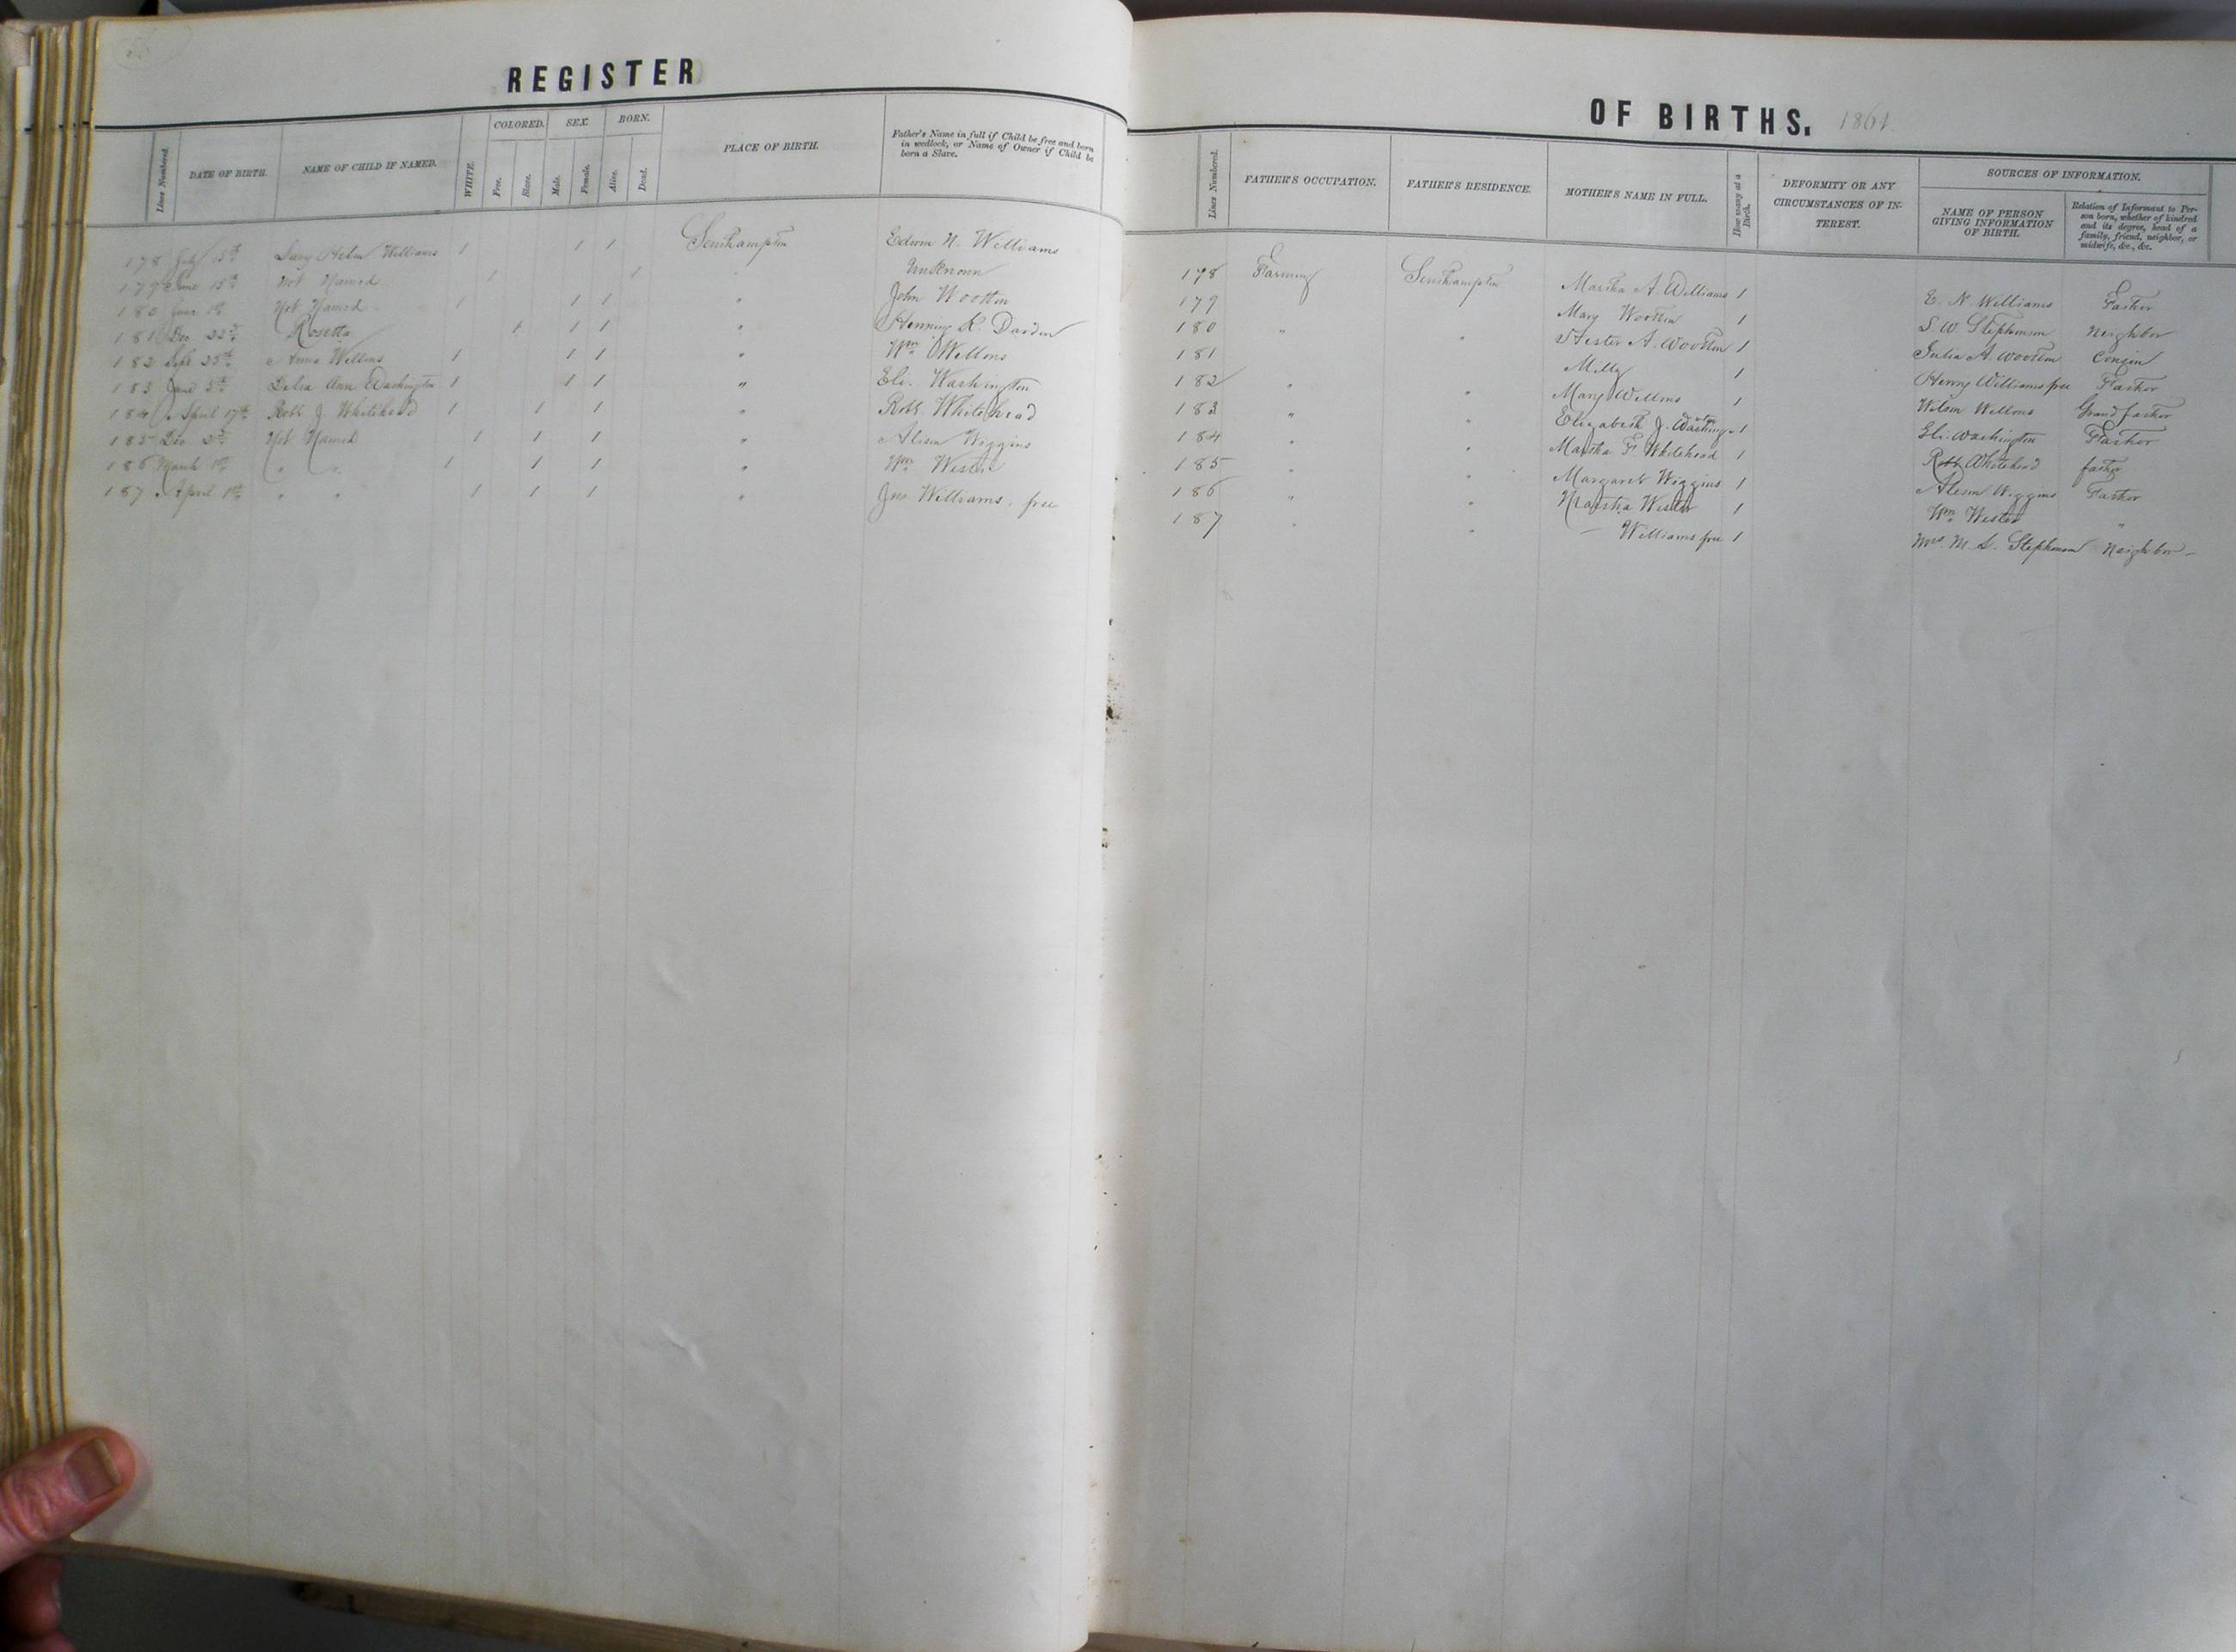 REGISTER
COLORED. SEX. BORN.
Lines Numbered. DATE OF BIRTH. NAME OF CHILD IF NAMED. WHITE. Free. Slave. Male. Female. Alive. Dead. PLACE OF BIRTH. Father's Name in full if Child be free and born in wedlock, or Name of Owner if Child be born a Slave.
178 July 15th Williams 1 1 1 Southampton Edwin N. Williams
179 June 15th Not Named 1 1 " Unknown
180 1st Not Named 1 1 1 " John Wootten
181 Dec 22nd Rosetta 1 1 1 " Henning R. Darden
182 Sept 25th Anna Wellons 1 1 1 " Wm Wellons
183 June 5th Delia Ann Washington 1 1 1 " Eli. Washington
184 April 17th Robt J. Whitehead 1 1 1 " Robt Whitehead
185 Dec Not Named 1 1 1 " Wiggins
186 March 1st " " 1 1 1 " Wm Wester
187 April 1st " " 1 1 1 " Jno Williams, free
OF BIRTHS. 1861
Lines Numbered. FATHER'S OCCUPATION. FATHER'S RESIDENCE. MOTHER'S NAME IN FULL. How many at a Birth. DEFORMITY OR ANY CIRCUMSTANCES OF INTEREST. SOURCES OF INFORMATION.
NAME OF PERSON GIVING INFORMATION OF BIRTH. Relation of Informant to Person born, whether of kindred and its degree, head of a family, friend, neighbor, or midwife, &c., &c.
178 Farming Southampton Martha A. Williams 1 E. N. Williams Father
179 Mary Wootten 1 S. W. Stephenson Neighbor
180 " " Hester A. Wootten 1 Julia A. Wootten Cousin
181 Milly 1 Henry Williams free Father
182 " " Mary Wellons 1 Wilson Wellons Grand father
183 " " Elizabeth J. Washington 1 Eli. Washington Father
184 " " Martha F. Whitehead 1 Robt Whitehead father
185 " " Margaret Wiggins 1 Wiggins Father
186 " " Martha Wester 1 Wm Wester "
187 " " — Williams free 1 Mrs. M. L. Stephenson Neighbor